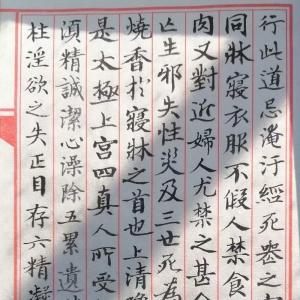 行此道忌淹汙經死喪之
同牀寢衣服不假人禁食
肉又對近婦人尤禁之甚
亡生邪失性災及三世死為
燒香於寢牀之首也上清
是太極上宮四真人所受
湏精誠潔心澡除五累遺
柱淫欲之失正目存六精凝